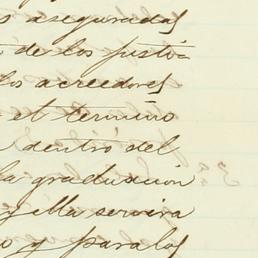 s aseguradas
de los justi=
los acreedores
el termino
dentro del
la graduacion
y ella servira
o y para los